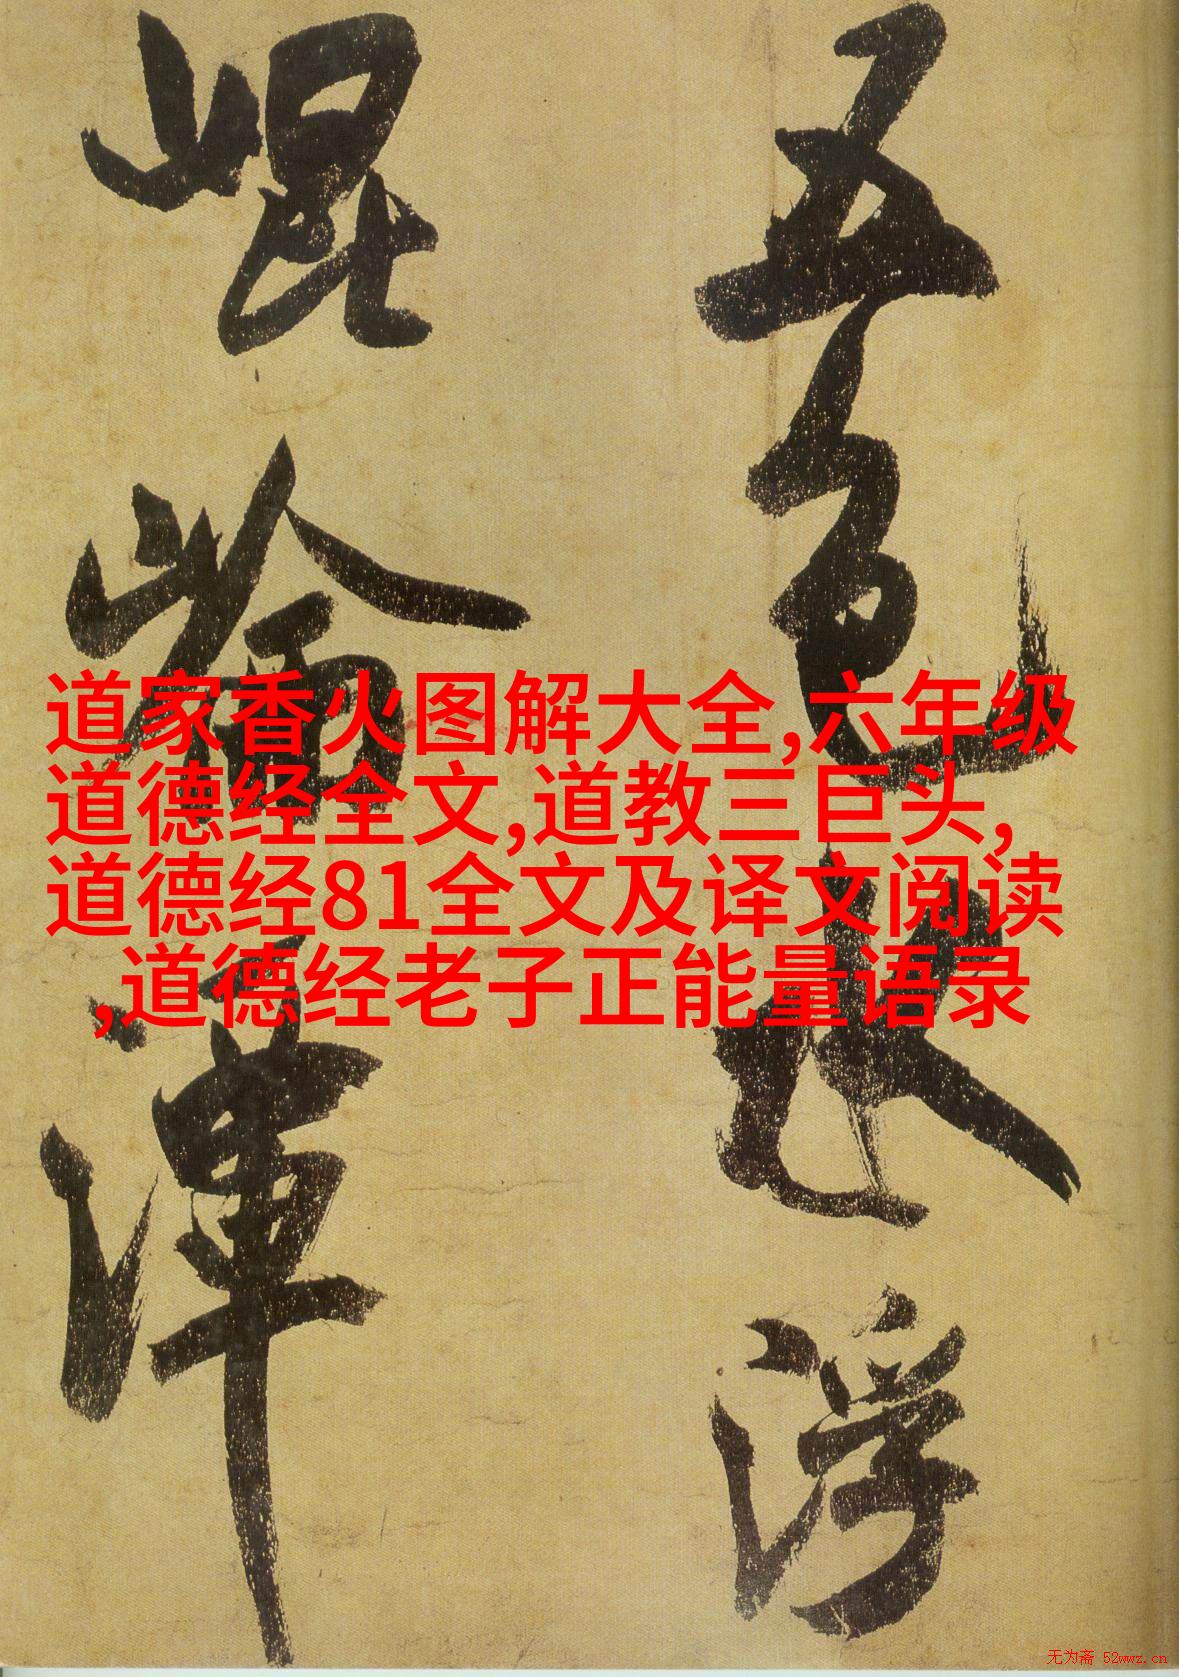 五色水浮
崐崘潭
道家香火图解大全,六年级
道德经全文,道教三巨头,
道德经81全文及译文阅读
,道德经老子正能量语录
无为斋 52wwz.cn